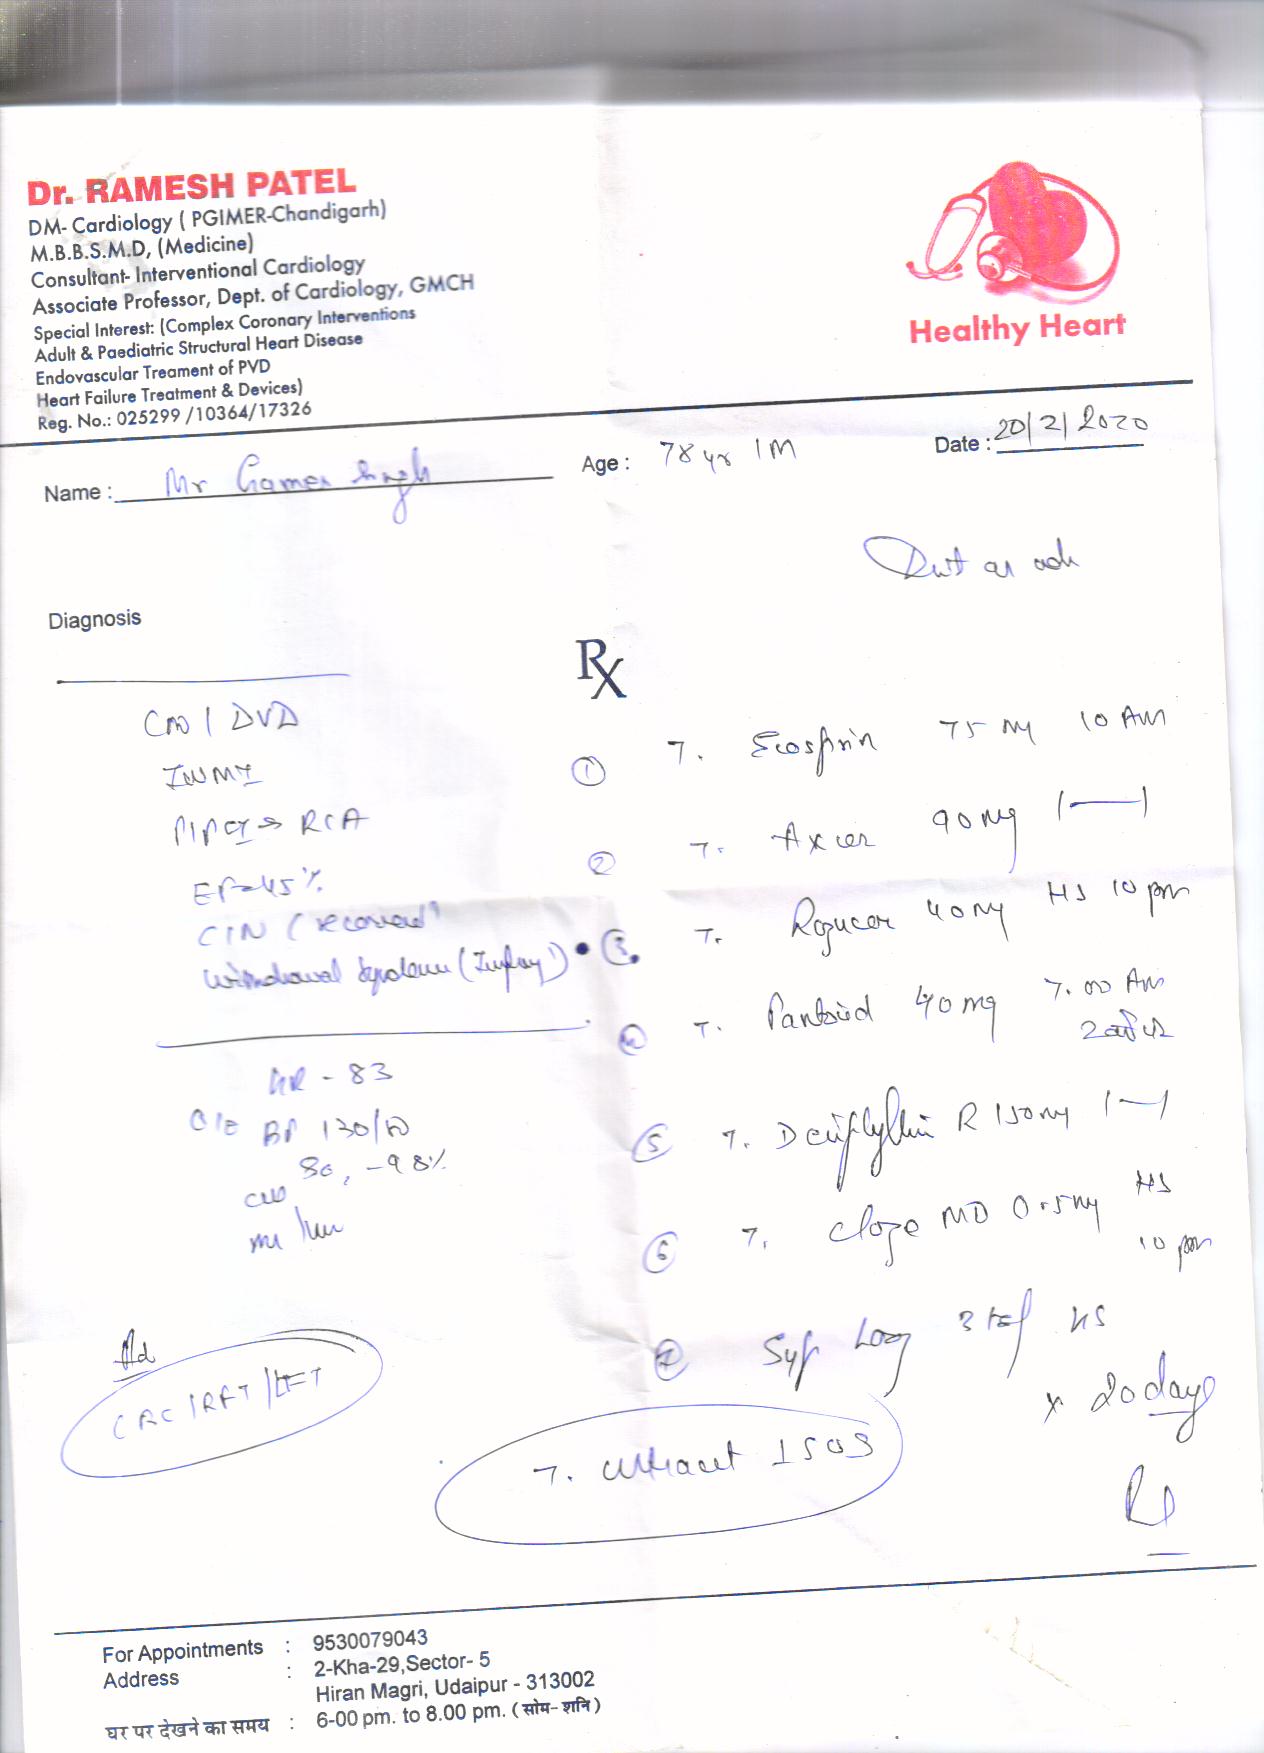 Dr. RAMESH PATEL
DM- Cardiology ( PGIMER-Chandigarh)
M.B.B.S.M.D, (Medicine)
Consultant- Interventional Cardiology
Associate Professor, Dept. of Cardiology, GMCH
Special Interest: (Complex Coronary Interventions
Adult & Paediatric Structural Heart Disease
Endovascular Treament of PVD
Heart Failure Treatment & Devices)
Reg. No.: 025299 /10364/17326
Healthy Heart
Name : Mr Singh
Age : 78 yr / M
Date : 20/2/2020
Diagnosis
Rx
CAD / DVD
IWMI
→ RCA
EF 45%
CIN (recovered)
Withdrawal
HR - 83
O/E BP 130/80
-98%
Adv
CBC / RFT / LFT
① T. Ecosprin 75 mg 10 AM
② T. Axcer 90 mg 1—1
3. T. 40 mg HS 10 pm
④ T. 40 mg 7.00 AM
⑤ T. Deriphyllin R 150 mg 1—1
⑥ T. MD 0.5 mg HS
10 pm
⑦ Syp 3 tsf HS
x 20 days
T. SOS
For Appointments : 9530079043
Address : 2-Kha-29,Sector- 5
Hiran Magri, Udaipur - 313002
घर पर देखने का समय : 6-00 pm. to 8.00 pm. ( सोम- शनि )